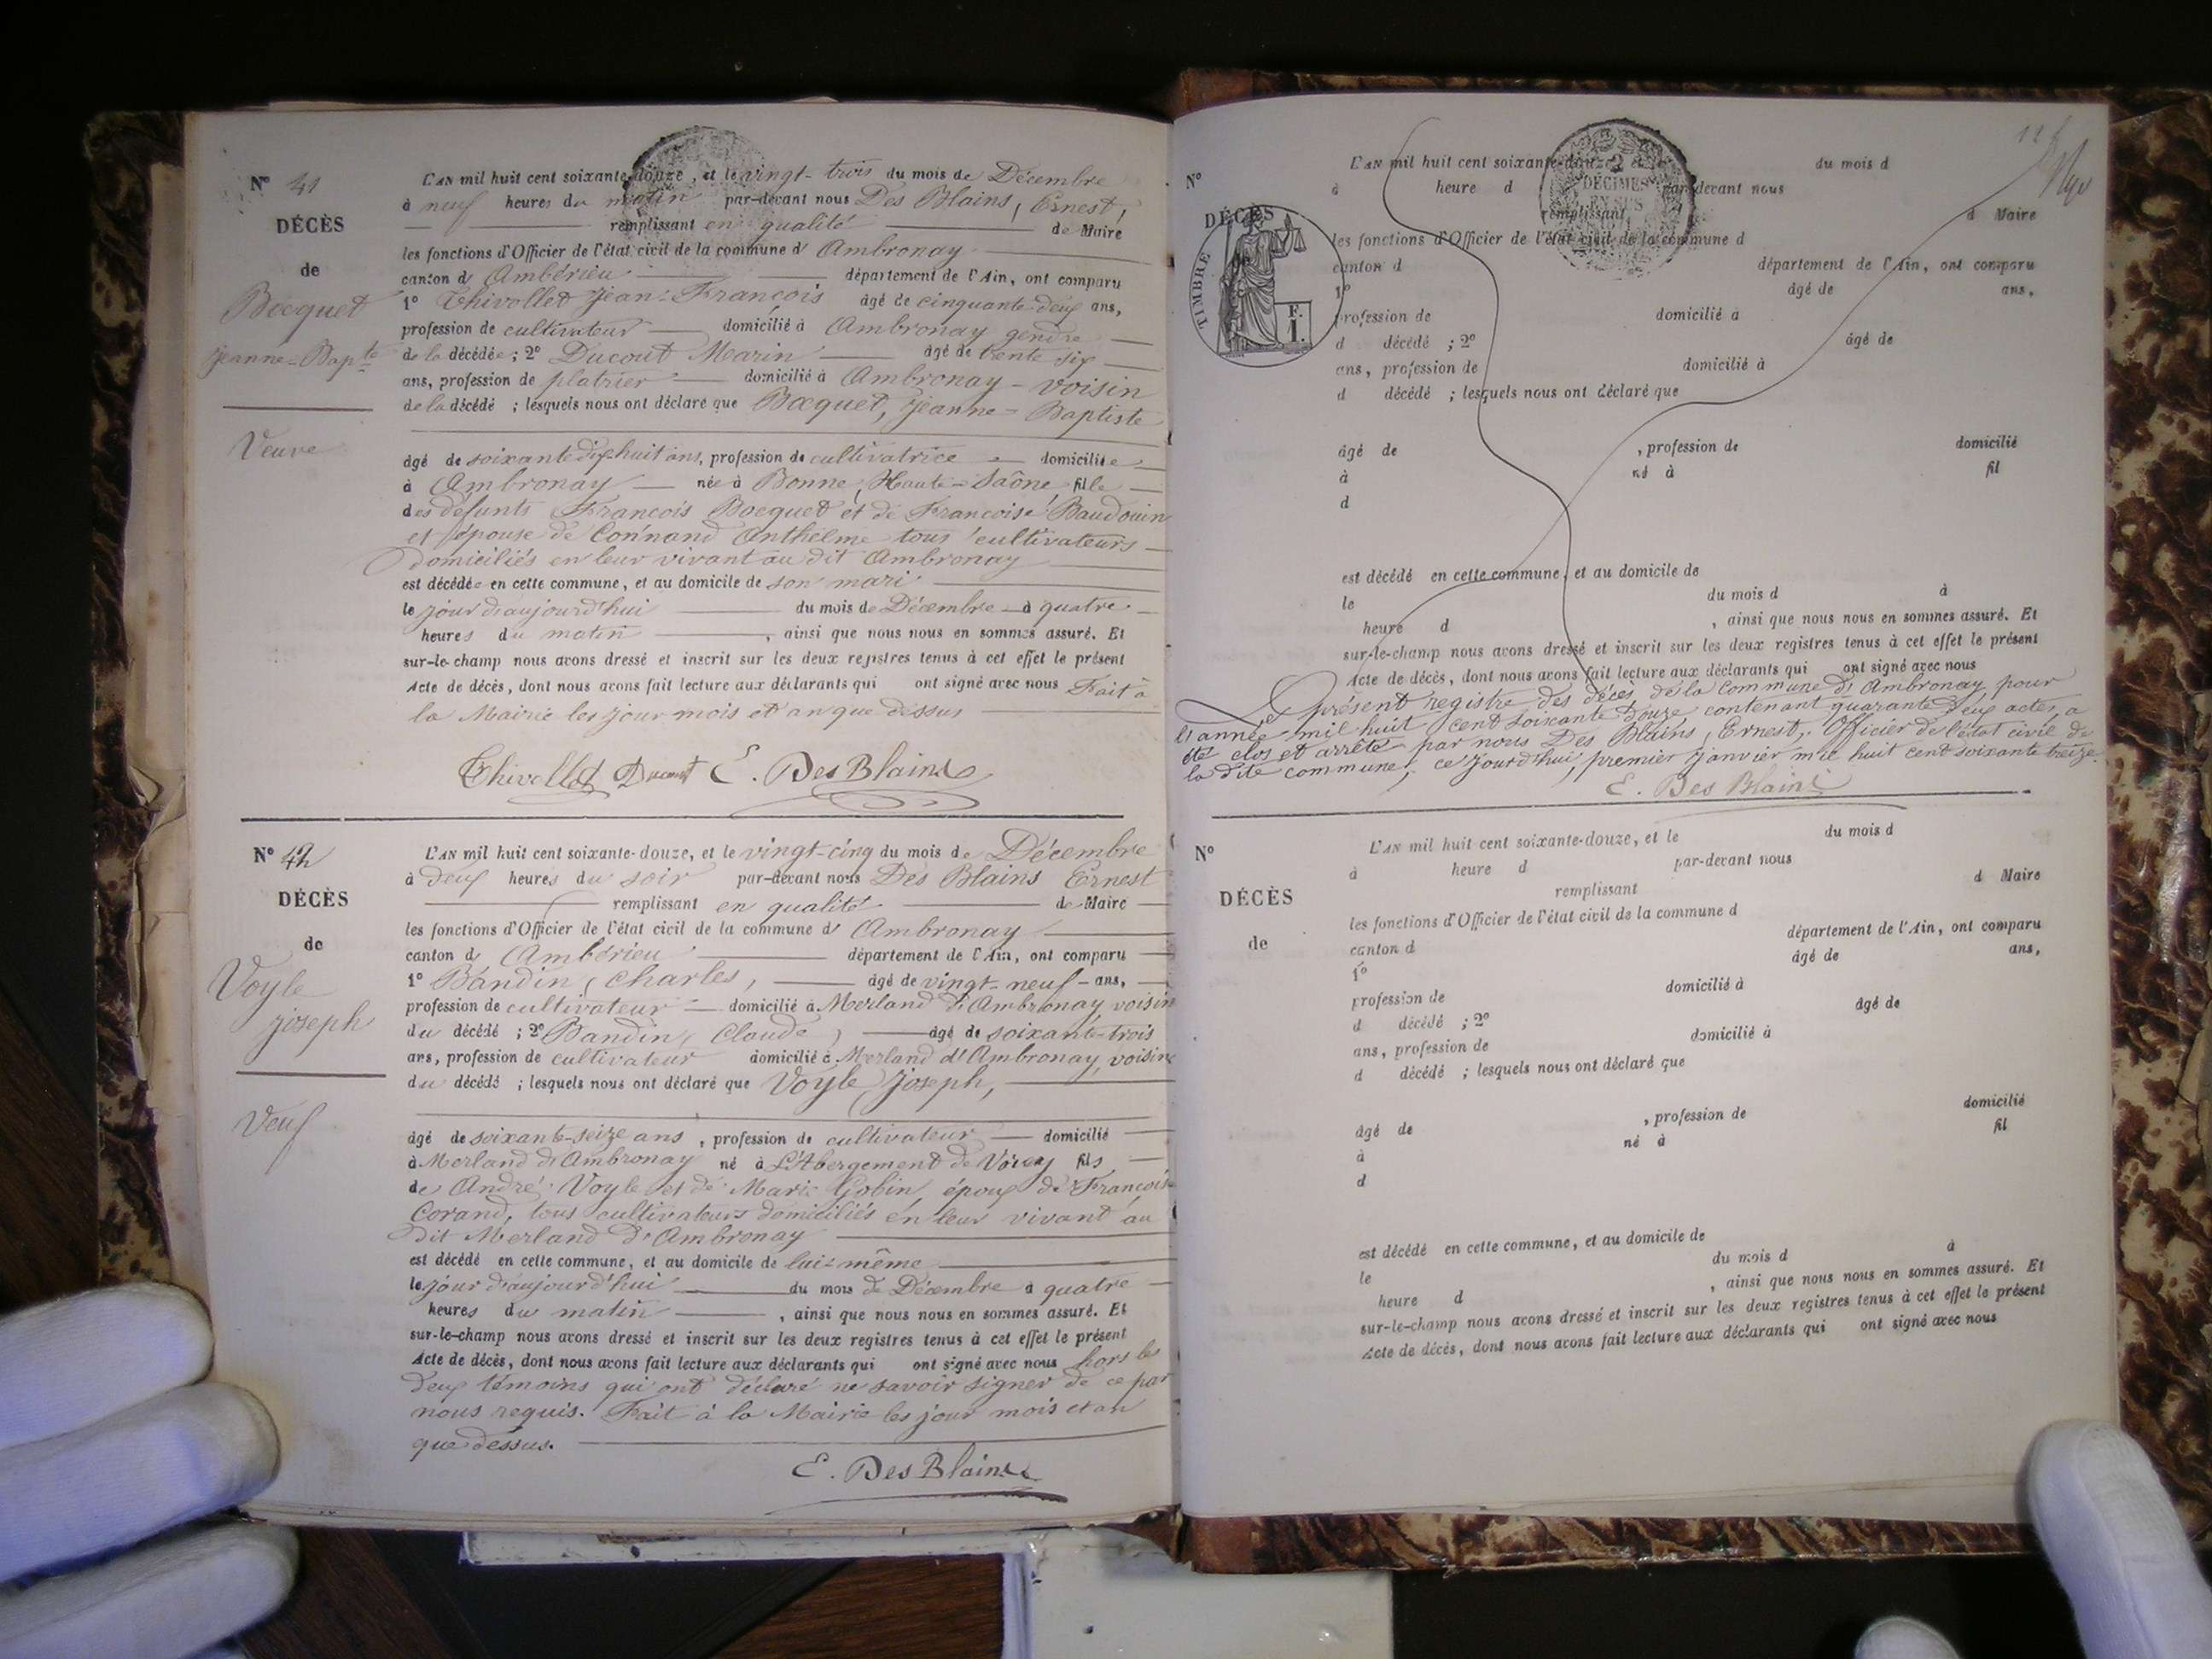 N° 41
DÉCÈS
de
Bocquet
Jeanne-Bapte
Veuve
L'AN mil huit cent soixante-douze, et le vingt-trois du mois de Décembre
à neuf heures du matin par-devant nous Des Blains, Ernest,
remplissant en qualité de Maire
les fonctions d'Officier de l'état civil de la commune d'Ambronay
canton d'Ambérieu département de l'Ain, ont comparu
1° Thivollet Jean-François âgé de cinquante-deux ans,
profession de cultivateur domicilié à Ambronay gendre
de la décédée ; 2° Ducout Marin âgé de trente six
ans, profession de platrier domicilié à Ambronay - voisin
de la décédé ; lesquels nous ont déclaré que Bocquet, Jeanne-Baptiste
âgé de soixante dix-huit ans, profession de cultivatrice domiciliée
à Ambronay née à Bonne, Haute-Saône, fille
des défunts François Bocquet et de Françoise Baudouin
et épouse de Connand Anthelme tous cultivateurs
domiciliés en leur vivant au dit Ambronay
est décédée en cette commune, et au domicile de son mari
le jour d'aujourd'hui du mois de Décembre à quatre
heures du matin , ainsi que nous nous en sommes assuré. Et
sur-le-champ nous avons dressé et inscrit sur les deux registres tenus à cet effet le présent
Acte de décès, dont nous avons fait lecture aux déclarants qui ont signé avec nous Fait à
la Mairie les jour mois et an que dessus
Thivollet Ducout E. Des Blains
N° 42
DÉCÈS
de
Voyle
joseph
Veuf
L'AN mil huit cent soixante-douze, et le vingt-cinq du mois de Décembre
à deux heures du soir par-devant nous Des Blains Ernest
remplissant en qualité de Maire
les fonctions d'Officier de l'état civil de la commune d'Ambronay
canton d'Ambérieu département de l'Ain, ont comparu
1° Bandin, Charles, âgé de vingt-neuf ans,
profession de cultivateur domicilié à Merland d'Ambronay, voisin
du décédé ; 2° Bandin, Claude âgé de soixante-trois
ans, profession de cultivateur domicilié à Merland d'Ambronay, voisin
du décédé ; lesquels nous ont déclaré que Voyle Joseph,
âgé de soixante-seize ans , profession de cultivateur domicilié
à Merland d'Ambronay né à L'Abergement de Varey fils
de André Voyle et de Marie Gobin, époux de Françoise
Corand, tous cultivateurs domiciliés en leur vivant au
dit Merland d'Ambronay
est décédé en cette commune, et au domicile de lui-même
le jour d'aujourd'hui du mois de Décembre à quatre
heures du matin , ainsi que nous nous en sommes assuré. Et
sur-le-champ nous avons dressé et inscrit sur les deux registres tenus à cet effet le présent
Acte de décès, dont nous avons fait lecture aux déclarants qui ont signé avec nous hors les
deux témoins qui ont déclaré ne savoir signer de ce par
nous requis. Fait à la Mairie les jour mois et an
que dessus.
E. Des Blains
N°
DÉCÈS
TIMBRE
F.
1.
2
DÉCIMES
EN SUS
L'AN mil huit cent soixante-douze, et le du mois d
à heure d par-devant nous
remplissant d Maire
les fonctions d'Officier de l'état civil de la commune d
canton d département de l'Ain, ont comparu
1° âgé de ans,
profession de domicilié à
d décédé ; 2° âgé de
ans, profession de domicilié à
d décédé ; lesquels nous ont déclaré que
âgé de , profession de domicilié
à né à fil
d
est décédé en cette commune, et au domicile de
le du mois d à
heure d , ainsi que nous nous en sommes assuré. Et
sur-le-champ nous avons dressé et inscrit sur les deux registres tenus à cet effet le présent
Acte de décès, dont nous avons fait lecture aux déclarants qui ont signé avec nous
Le présent registre des décès de la commune d'Ambronay, pour
l'année mil huit cent soixante douze contenant quarante deux actes, a
été clos et arrêté par nous Des Blains, Ernest, Officier de l'état civil de
la dite commune, ce jourd'hui, premier janvier mil huit cent soixante treize.
E. Des Blains
N°
DÉCÈS
de
L'AN mil huit cent soixante-douze, et le du mois d
à heure d par-devant nous
remplissant d Maire
les fonctions d'Officier de l'état civil de la commune d
canton d département de l'Ain, ont comparu
1° âgé de ans,
profession de domicilié à
d décédé ; 2° âgé de
ans, profession de domicilié à
d décédé ; lesquels nous ont déclaré que
âgé de , profession de domicilié
à né à fil
d
est décédé en cette commune, et au domicile de
le du mois d à
heure d , ainsi que nous nous en sommes assuré. Et
sur-le-champ nous avons dressé et inscrit sur les deux registres tenus à cet effet le présent
Acte de décès, dont nous avons fait lecture aux déclarants qui ont signé avec nous